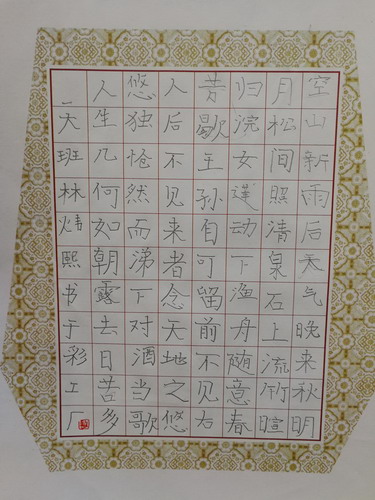 空山新雨后天气晚来秋明
月松间照清泉石上流竹喧
归浣女莲动下渔舟随意春
芳歇王孙自可留前不见古
人后不见来者念天地之悠
悠独怆然而涕下对酒当歌
人生几何如朝露去日苦多
一大班林炜熙书于彩工厂